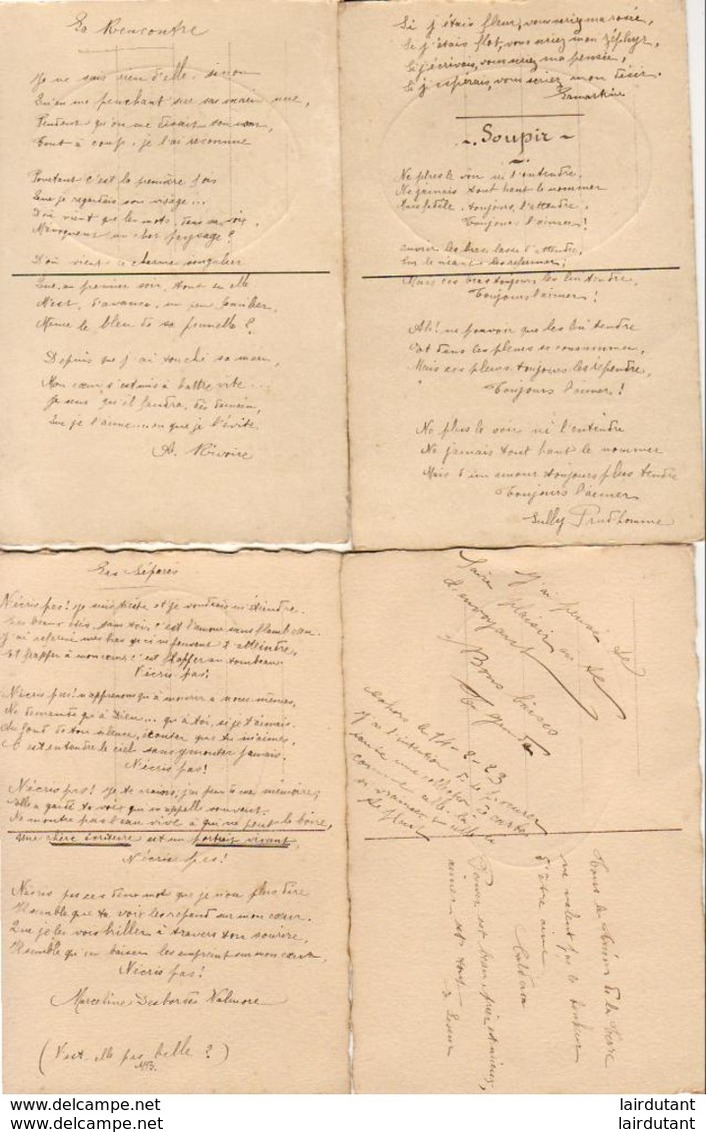 La Rencontre
Je ne sais rien d'elle, sinon
Qu'en me penchant sur sa main nue,
Pendant qu'on me disait son nom,
Tout à coup, je l'ai reconnue
Pourtant c'est la première fois
Que je regardais son visage...
D'où vient que les mots, dans sa voix,
M'évoquent un cher paysage?
D'où vient ce charme singulier
Que, au premier soir, tout en elle
M'est, d'avance, un peu familier,
Même le bleu de sa prunelle?
Depuis que j'ai touché sa main,
Mon cœur s'est mis à battre vite...
Je sens qu'il faudra, dès demain,
Que je l'aime... ou que je l'évite
A. Rivoire
Si j'étais fleur, vous seriez ma rosée,
Si j'étais flot, vous seriez mon zéphyr,
Si j'écrivais, vous seriez ma pensée,
Si j'espérais, vous seriez mon désir.
Lamartine
Soupir
Ne plus le voir ni l'entendre,
Ne jamais tout haut le nommer
Mais fidèle, toujours l'attendre,
Toujours l'aimer!
ouvrir les bras, lasse d'attendre,
Sur le néant les refermer;
Mais ces bras toujours les lui tendre,
Toujours l'aimer!
Ah! ne pouvoir que les lui tendre
Et dans les pleurs se consummer,
Mais ces pleurs toujours les répendre,
Toujours l'aimer!
Ne plus le voir ni l'entendre
Ne jamais tout haut le nommer
Mais d'un amour toujours plus tendre
Toujours l'aimer
Sully Prudhomme
Les Séparés
N'écris pas! je suis triste et je voudrais m'éteindre.
Les beaux étés, sans toi, c'est l'amour sans flambeau.
J'ai refermé mes bras qui ne peuvent t'atteindre,
Et frapper à mon cœur c'est frapper au tombeau
N'écris pas!
N'écris pas! n'apprenons qu'à mourir à nous-mêmes,
Ne demande qu'à Dieu... qu'à toi, si je t'aimais.
Au fond de ton silence, écouter que tu m'aimes,
C'est entendre le ciel sans y monter jamais.
N'écris pas!
N'écris pas! je te crains, j'ai peur de ma mémoire;
Elle a gardé ta voix qui m'appelle souvent.
Ne montre pas l'eau vive à qui ne peut la boire,
Une chère écriture est un portrait vivant,
N'écris pas!
N'écris pas ces deux mots que je n'ose plus lire
Il semble que ta voix les répand sur mon cœur.
Que je les vois briller à travers ton sourire,
Il semble qu'un baiser les empreint sur mon cœur
N'écris pas!
Marceline Desbordes Valmore
(N'est-elle pas belle?)
J'ai pensé te
faire plaisir en te
l'envoyant
Bons baisers
Cahors le 14-2-23
J'ai l'intention
une collection
comme celle
si vraiment
te plait
Tous les trésors de la terre
ne valent pas le bonheur
d'être aimé
Calderon
aimer est tout
lairdutant
lairdutant